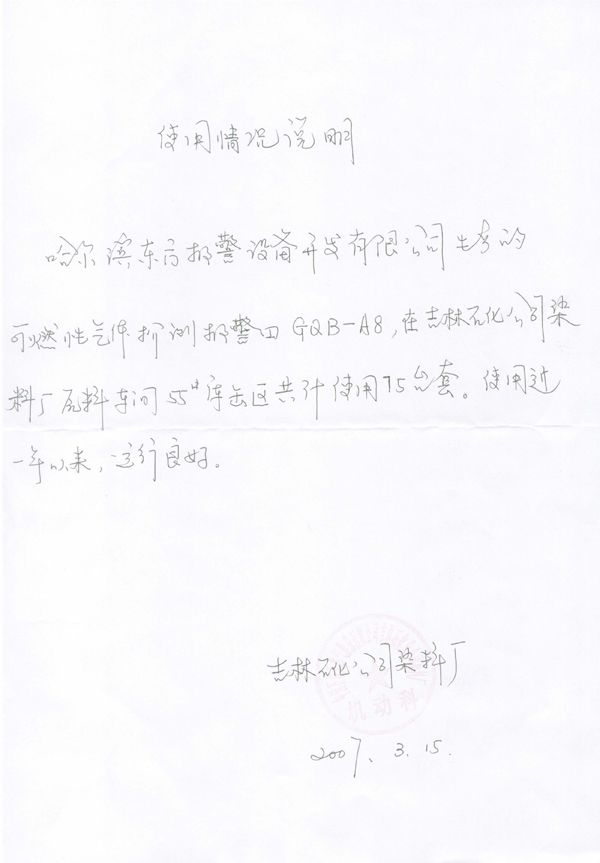 使用情况说明
哈尔滨东方报警设备开发有限公司生产的
可燃性气体探测报警四 GQB-A8,在吉林石化公司染
料厂原料车间55#库缶区共计使用75台套。使用近
一年以来,运行良好。
吉林石化公司染料厂
机动科
2007、3.15.